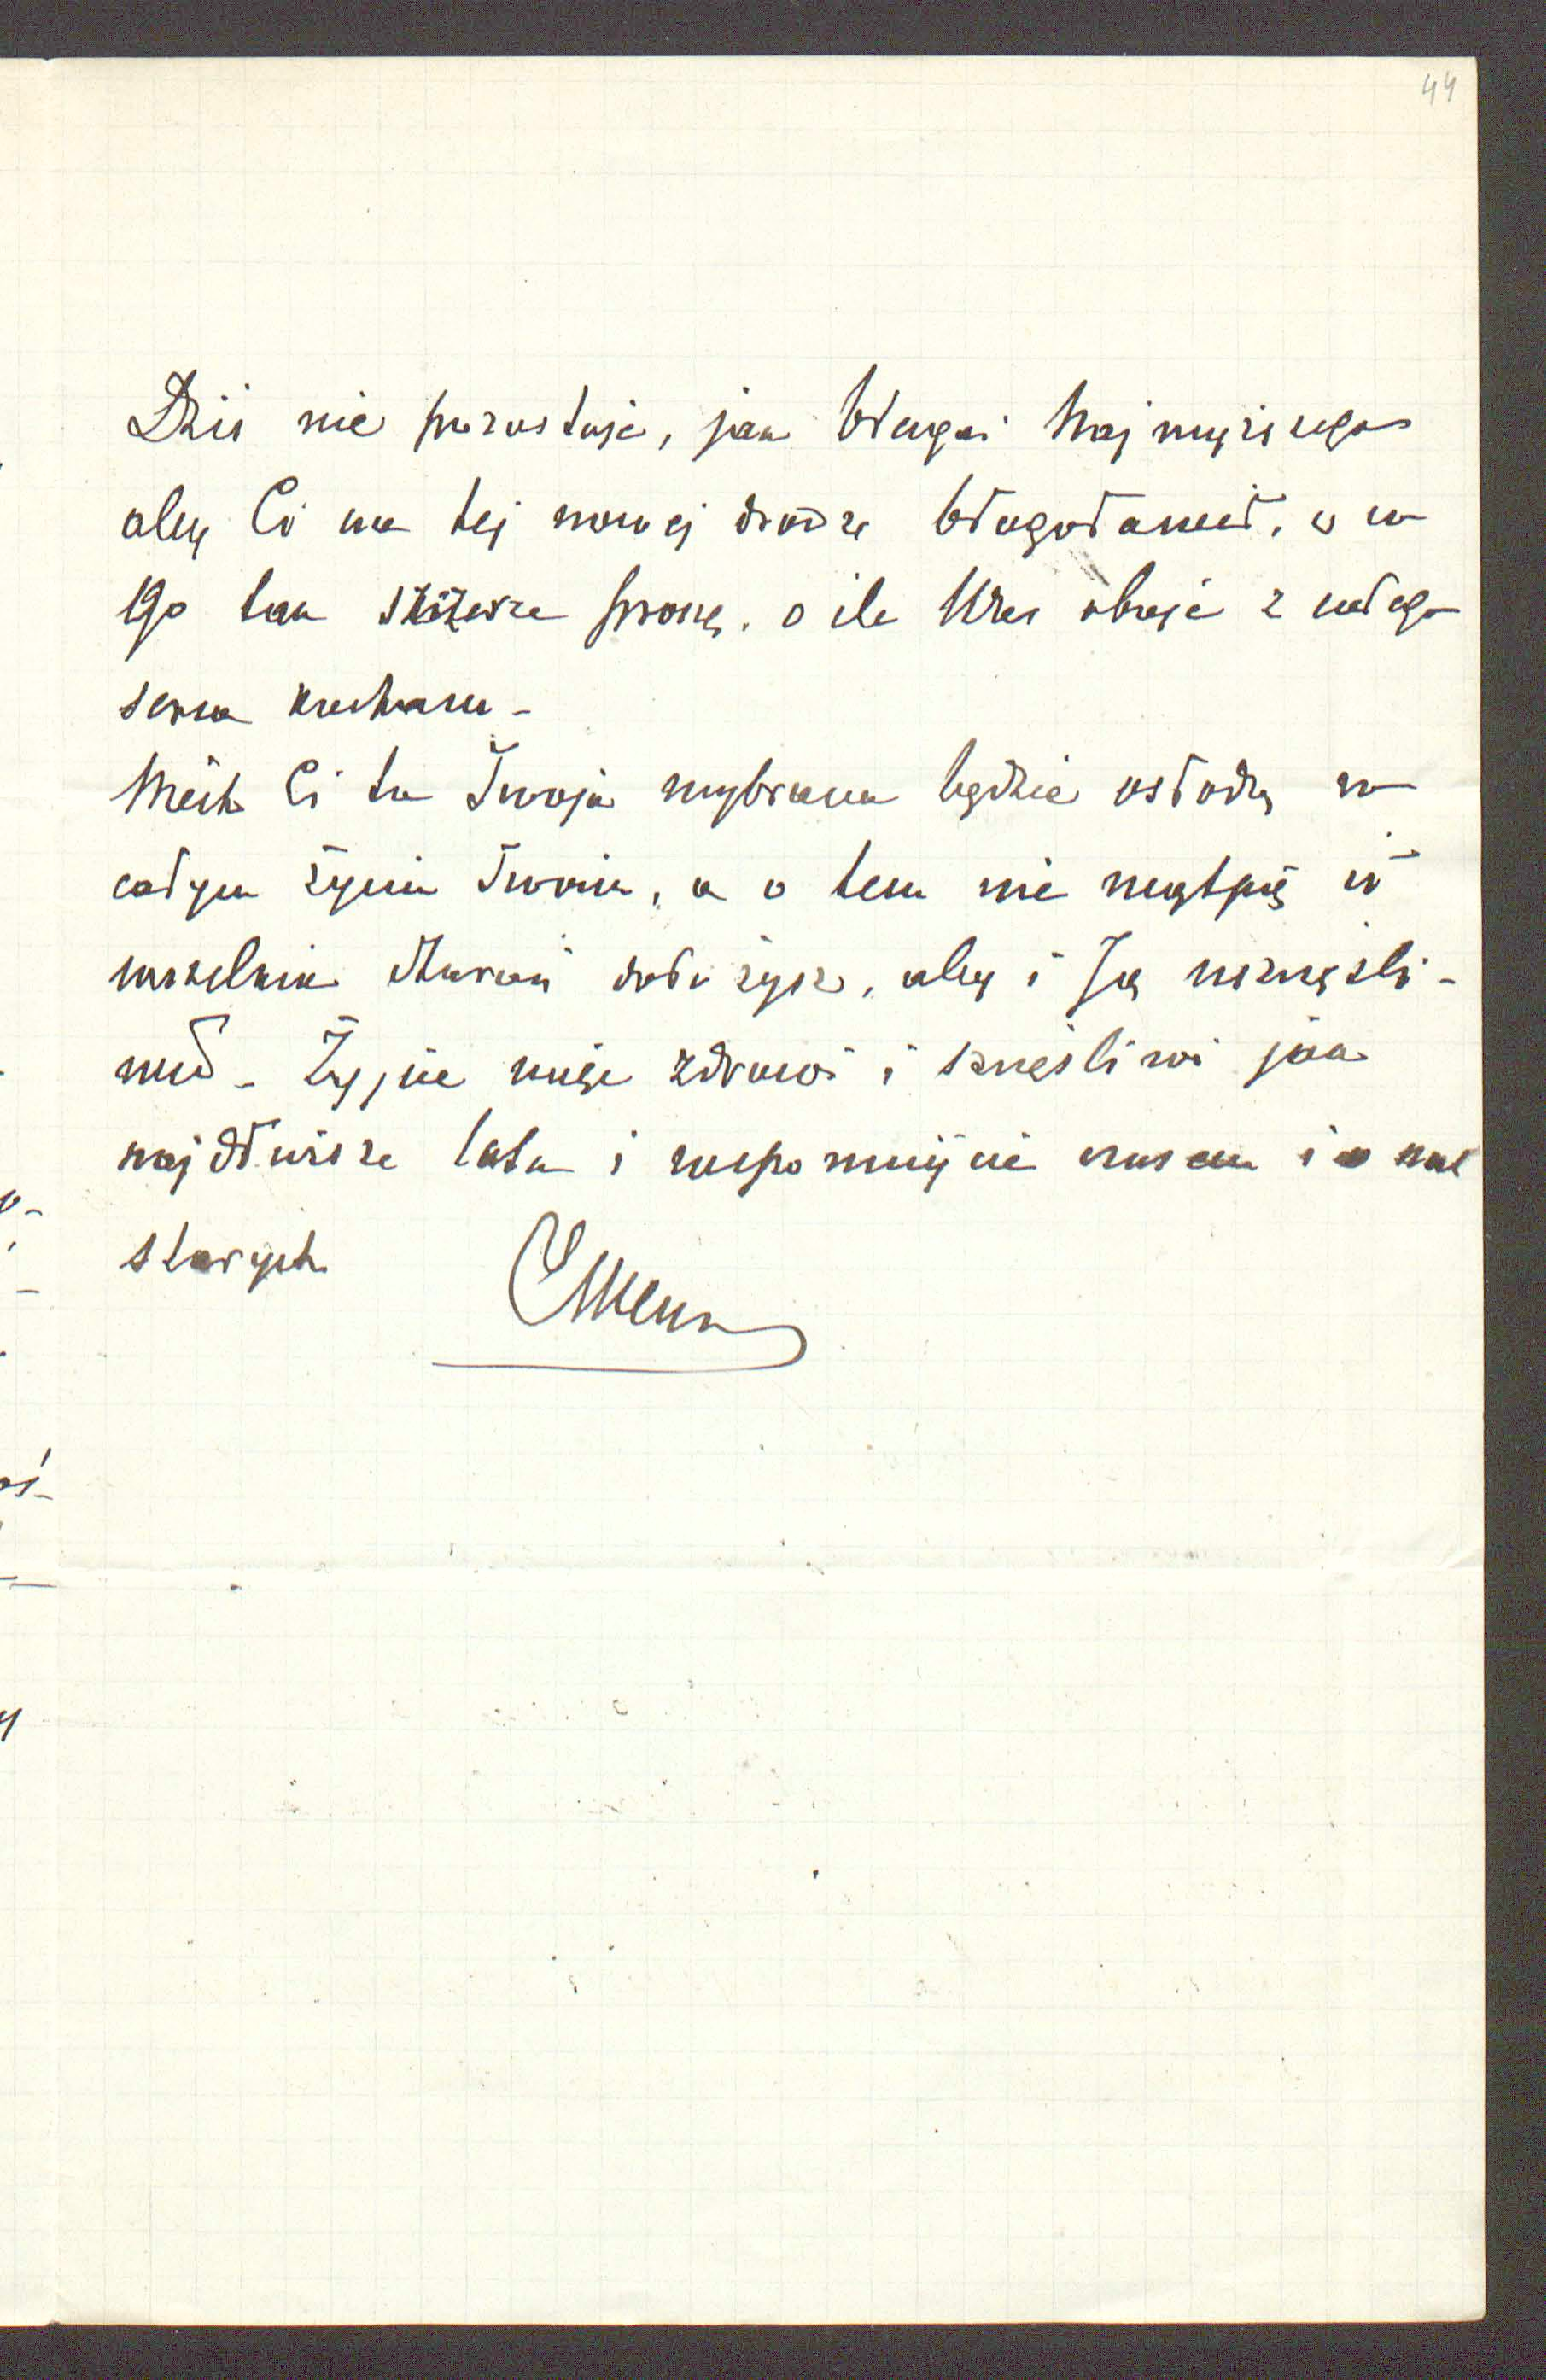 44
Dziś nie pozostaje, jak błagać Najwyższego
aby Ci na tej nowej drodze błogosławił, o co
Go tak szczerze proszę, o ile Was oboje z całego
serca kocham -
Niech Ci ta Twoja wybrana będzie osłodą w
całym życiu Twoim, a o tem nie wątpię iż
wszelkich starań dołożysz, aby i Ją uszczęśli-
wić - Żyjcie więc zdrowi i szczęśliwi jak
najdłuższe lata i wspomnijcie czasem i o nas
starych